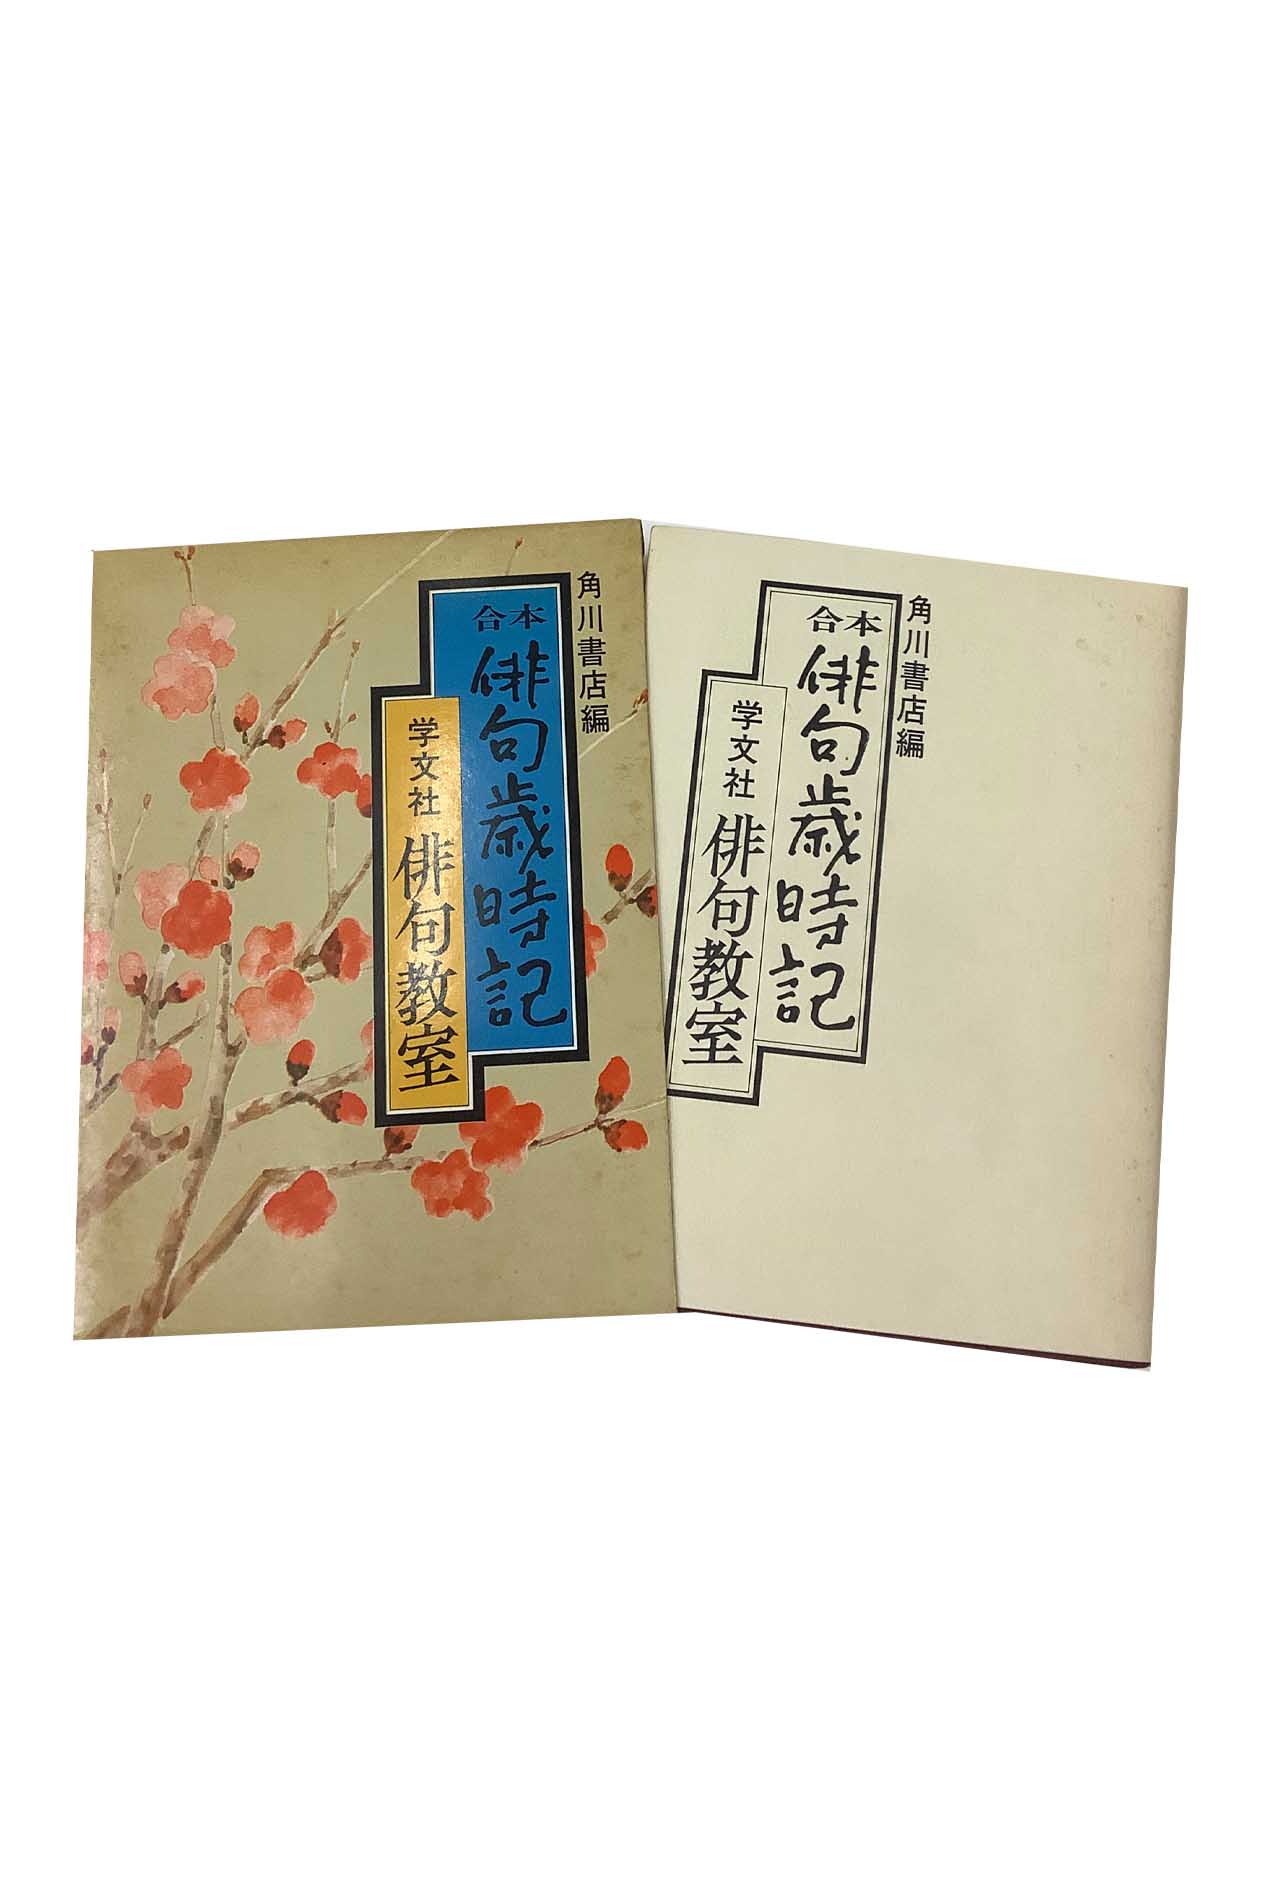 角川書店編
合本
俳句歳時記
学文社
俳句教室
角川書店編
合本
俳句歳時記
学文社
俳句教室